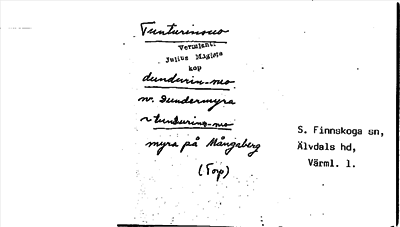 Tunturinsuo
Vermlanti
Julius Mägiste
kop
dundurin-nєo
nv. Dundermyra
~ tunduring-nєo
myra på Mångsberg
(Top)
S. Finnskoga sn,
Älvdals hd,
Värml. l.